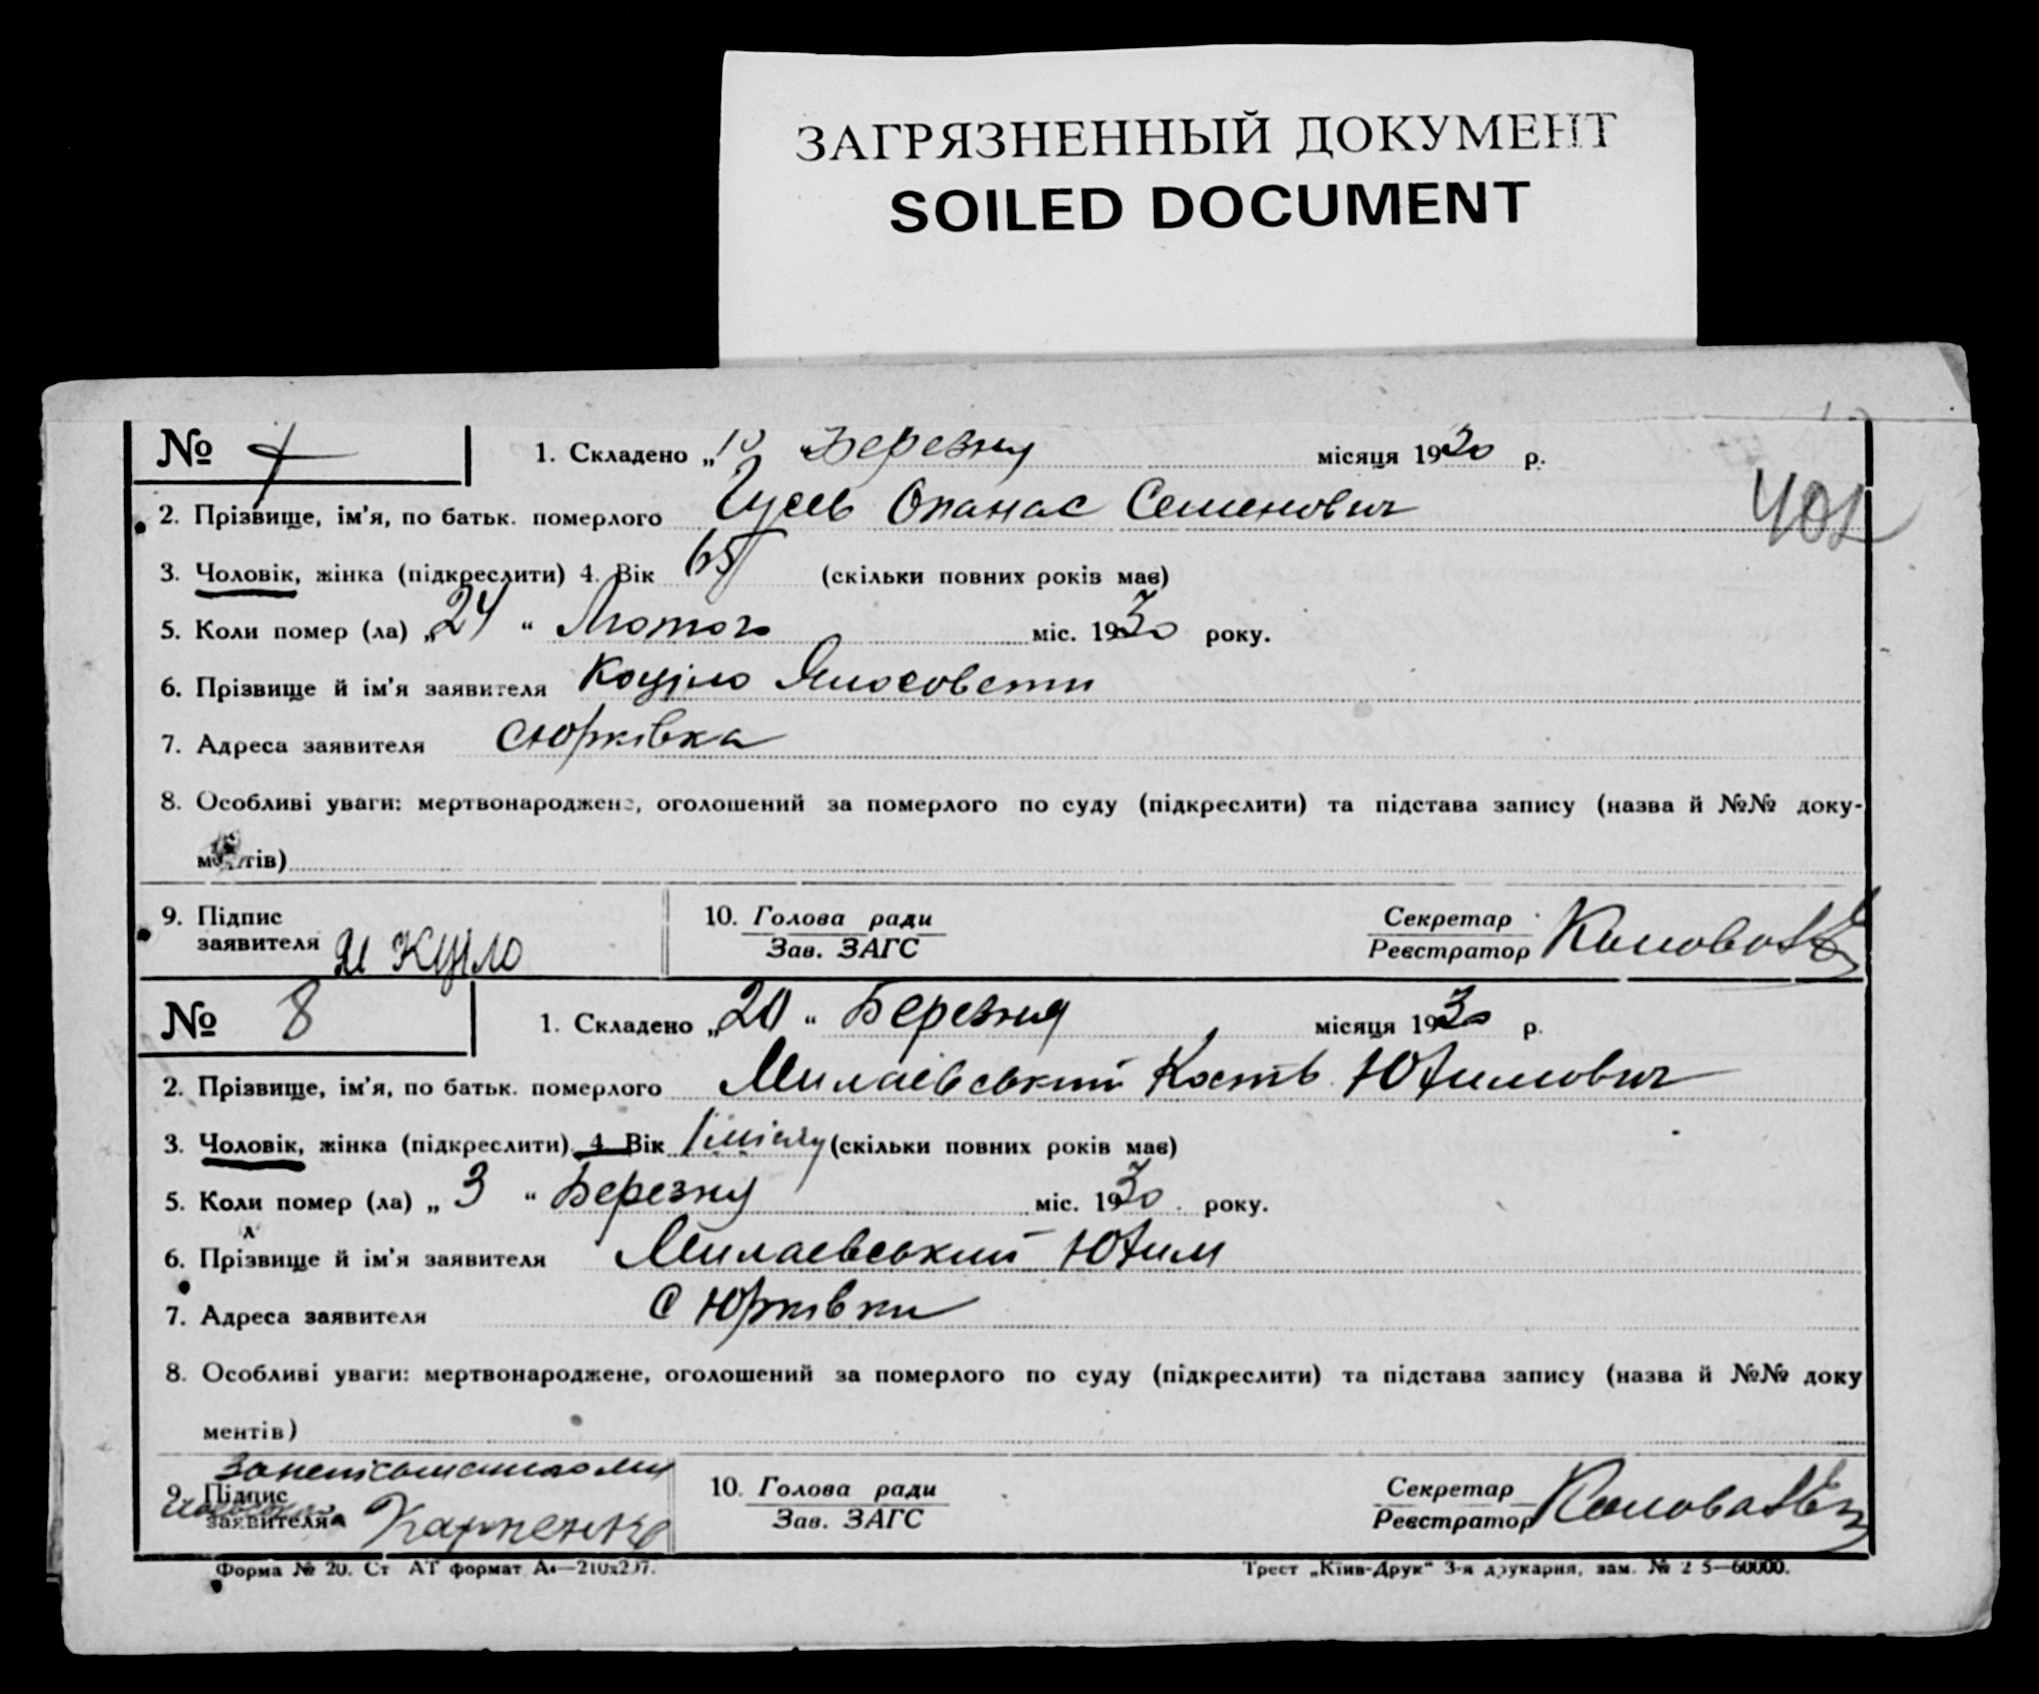 ЗАГРЯЗНЕННЫЙ ДОКУМЕНТ
SOILED DOCUMENT
№ 7 1. Складено „10 Березня місяця 1930 р.
402
2. Прізвище, ім'я, по батьк. померлого Гусев Опанас Семенович
3. Чоловік, жінка (підкреслити) 4. Вік 65 (скільки повних років має)
5. Коли помер (ла) „24 “ Лютого міс. 1930 року.
6. Прізвище й ім'я заявителя
7. Адреса заявителя с Юрківка
8. Особливі уваги: мертвонароджене, оголошений за померлого по суду (підкреслити) та підстава запису (назва й №№ доку-
ментів)
9. Підпис 10. Голова ради Секретар
заявителя Зав. ЗАГС Реєстратор
№ 8 1. Складено „20 “ Березня місяця 1930 р.
2. Прізвище, ім'я, по батьк. померлого Милаєвський Кость Юхимович
3. Чоловік, жінка (підкреслити) 4. Вік (скільки повних років має)
5. Коли помер (ла) „ 3 “ Березня міс. 1930 року.
6. Прізвище й ім'я заявителя Милаевський Юхим
7. Адреса заявителя с Юрківки
8. Особливі уваги: мертвонароджене, оголошений за померлого по суду (підкреслити) та підстава запису (назва й №№ доку
ментів)
9. Підпис 10. Голова ради Секретар
заявителя Карпенко Зав. ЗАГС Реєстратор
Форма № 20. Ст АТ формат А4—210х297. Трест „Київ-Друк“ 3-я друкарня, зам. № 2 5—60000.